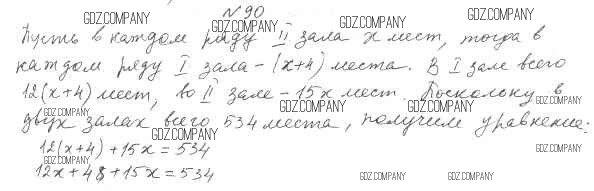 N90
Пусть в каждом ряду II зала x мест, тогда в
каждом ряду I зала - (x+4) места. В I зале всего
12(x+4) мест, во II зале - 15x мест. Поскольку в
двух залах всего 534 места, получим уравнение:
12(x+4)+15x=534
12x+48+15x=534
GDZ.COMPANY
GDZ.COMPANY
GDZ.COMPANY
GDZ.COMPANY
GDZ.COMPANY
GDZ.COMPANY
GDZ.COMPANY
GDZ.COMPANY
GDZ.COMPANY
GDZ.COMPANY
GDZ.COMPANY
GDZ.COMPANY
GDZ.COMPANY
GDZ.COMPANY